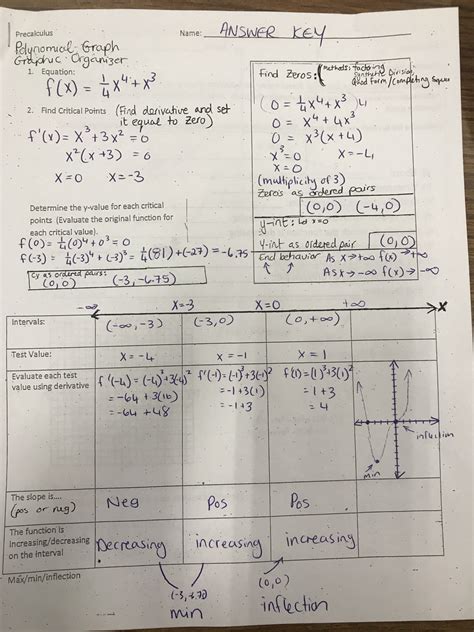 Precalculus
Name: ANSWER KEY
Polynomial Graph
Graphic Organizer
1. Equation:
f(x) = 1/4 x⁴ + x³
2. Find Critical Points (Find derivative and set
it equal to zero)
f'(x) = x³ + 3x² = 0
x²(x+3) = 0
x=0 x=-3
Determine the y-value for each critical
points (Evaluate the original function for
each critical value).
f(0) = 1/4(0)⁴ + 0³ = 0
f(-3) = 1/4(-3)⁴ + (-3)³ = 1/4(81) + (-27) = -6.75
as ordered pairs:
(0,0) (-3, -6.75)
Find Zeros: (Methods: factoring
Synthetic Division,
Quad Form/Completing Square
(0 = 1/4 x⁴ + x³)4
0 = x⁴ + 4x³
0 = x³(x+4)
x³=0 x=-4
x=0
(multiplicity of 3)
Zero's as ordered pairs
(0,0) (-4,0)
y-int: Let x=0
y-int as ordered pair (0,0)
End behavior As x→+∞ f(x) → +∞
As x→-∞ f(x)→
-∞ x=-3 x=0 +∞ x
Intervals: (-∞,-3) (-3,0) (0,+∞)
Test Value: x=-4 x=-1 x=1
Evaluate each test
value using derivative
f'(-4)=(-4)³+3(-4)²
=-64+3(16)
=-64+48
f'(-1)=(-1)³+3(-1)²
=-1+3(1)
=-1+3
f(1)=(1)³+3(1)²
=1+3
=4
inflection
min
The slope is....
(pos or neg)
Neg Pos Pos
The function is
increasing/decreasing
on the interval
Decreasing increasing increasing
Max/min/inflection
(-3,-6.75)
min
(0,0)
inflection